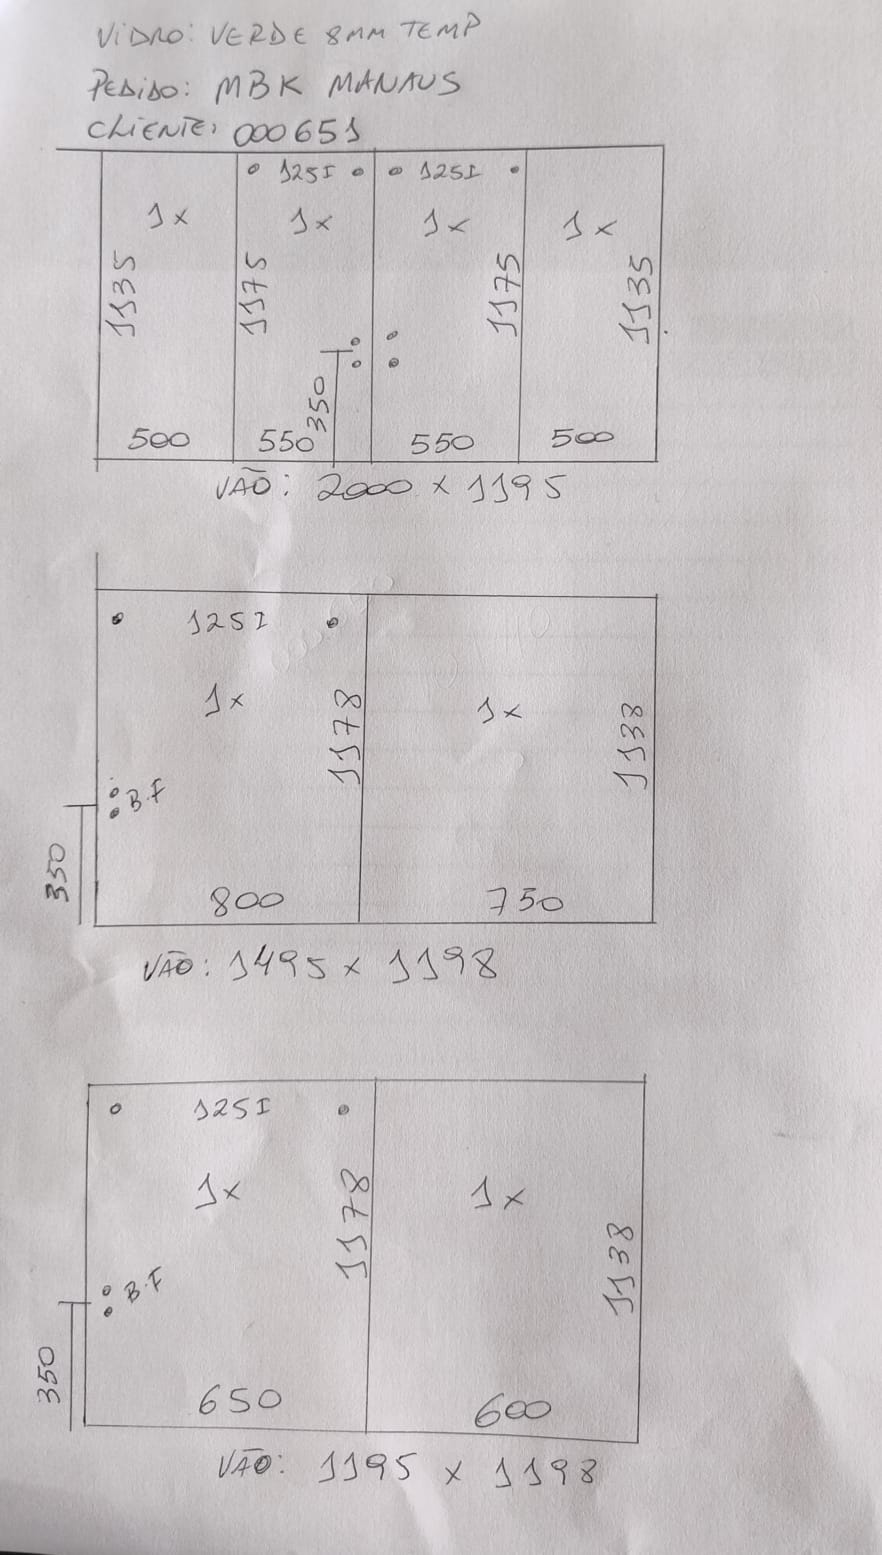 VIDRO: VERDE 8MM TEMP
PEDIDO: MBK MANAUS
CLIENTE: 000651
125I 125I
1x 1x 1x 1x
1135 1175 1175 1135
350
500 550 550 500
VÃO: 2000 x 1195
125I
1x 1x
1178 1138
B.F
350
800 750
VÃO: 1495 x 1198
125I
1x 1x
1178 1138
B.F
350
650 600
VÃO: 1195 x 1198